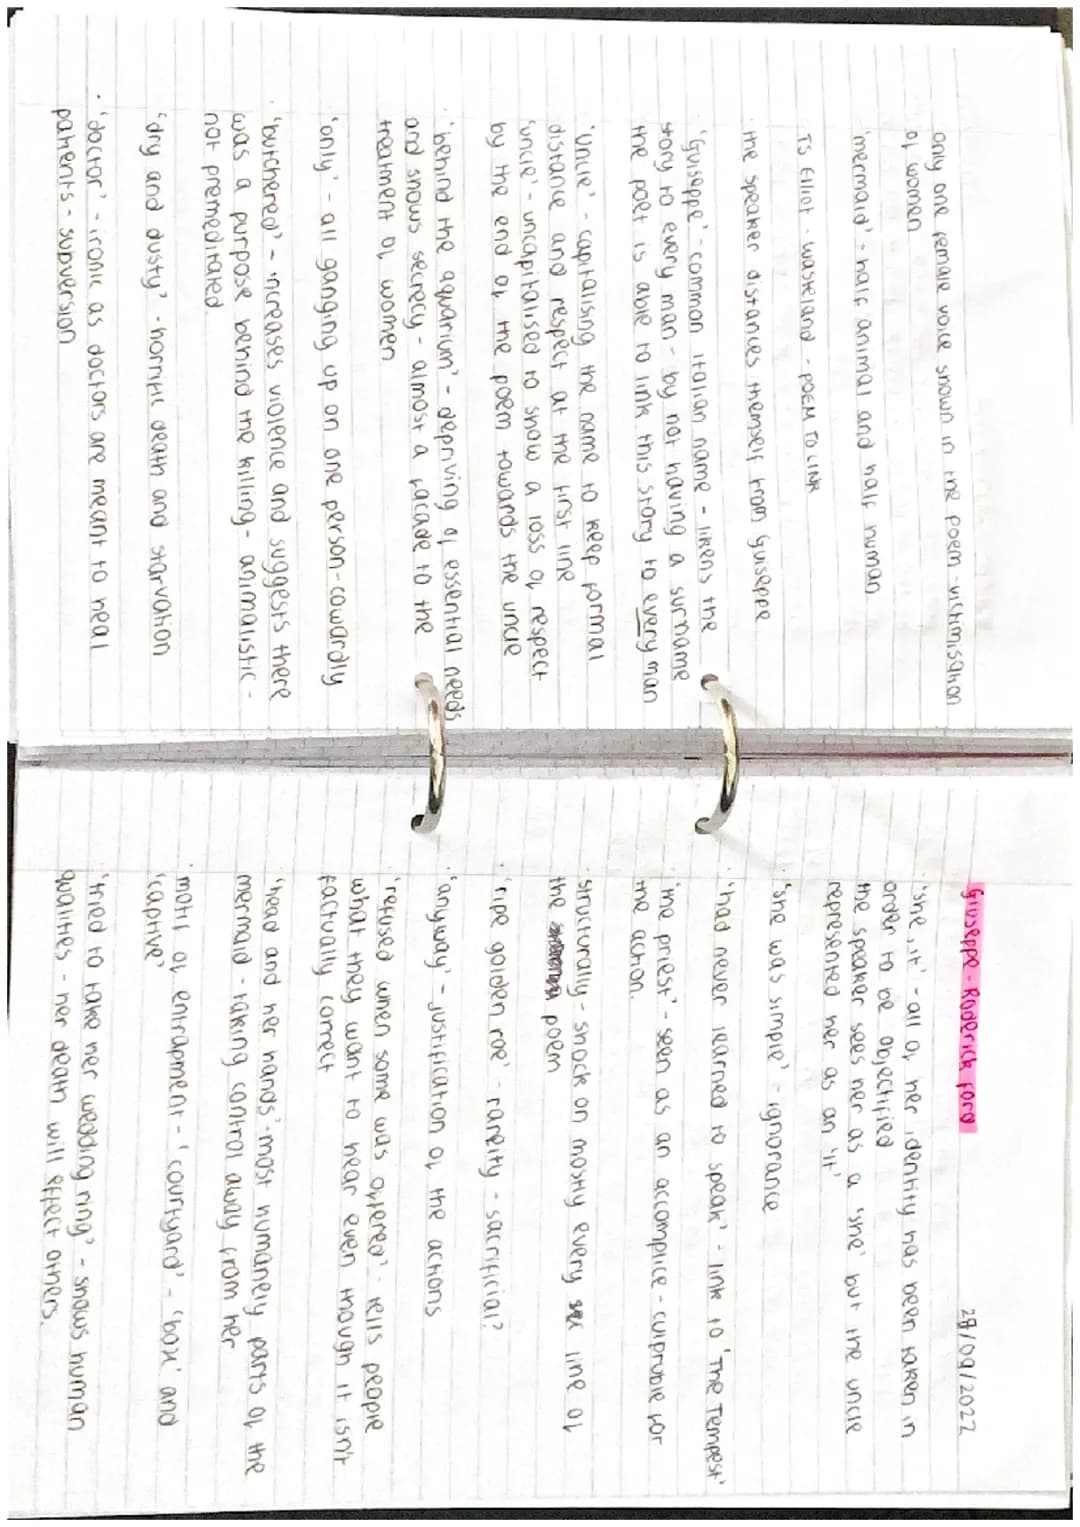 only one female voice shown in the poem - victimisation
of women
'mermaid' - half animal and half human
TS Elliot - wasteland - POEM TO LINK
· the speaker distances themself from Guiseppe
· 'Guiseppe' - common italian name - likens the
story to every man - by not having a surname
the poet is able to link this story to every man
'Uncle' - capitalising the name to keep formal
distance and respect at the first line
'uncle' - uncapitalised to show a loss of respect
by the end of the poem towards the uncle
· 'behind the aquarium' - depriving of essential needs
and shows secrecy - almost a facade to the
treatment of women
'only' - all ganging up on one person - cowardly
· 'butchered' - increases violence and suggests there
was a purpose behind the killing - animalistic -
not premeditated.
'dry and dusty' - horrific death and starvation
· 'doctor' - ironic as doctors are meant to heal
patients - subversion
Giuseppe - Roderick Ford
28/09/2022
· 'she, it' - all of her identity has been taken in
order to be objectified
the speaker sees her as a 'she' but the uncle
represented her as an 'it'
· 'she was simple' - ignorance
· 'had never learned to speak' - link to 'The Tempest'
· 'the priest' - seen as an accomplice - culpruble for
the action.
· structurally - shock on mostly every line of
the poem
· 'ripe golden roe' - rareity - sacrificial?
· 'anyway' - justification of the actions
· 'refused when some was offered' - tells people
what they want to hear even though it isn't
factually correct
· 'head and her hands' - most humanely parts of the
mermaid - taking control away from her
· motif of entrapment - 'courtyard' - 'box' and
'captive'
· 'tried to take her wedding ring' - shows human
qualities - her death will effect others.